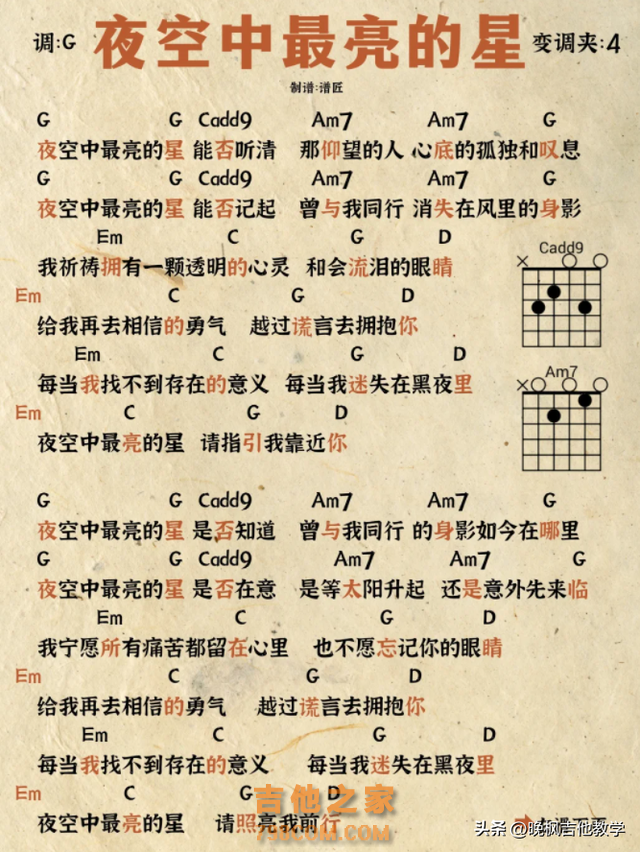 调:G 夜空中最亮的星 变调夹:4
制谱:谱匠
G G Cadd9 Am7 Am7 G
夜空中最亮的星 能否听清 那仰望的人 心底的孤独和叹息
G G Cadd9 Am7 Am7 G
夜空中最亮的星 能否记起 曾与我同行 消失在风里的身影
Em C G D
我祈祷拥有一颗透明的心灵 和会流泪的眼睛
Em C G D
给我再去相信的勇气 越过谎言去拥抱你
Em C G D
每当我找不到存在的意义 每当我迷失在黑夜里
Em C G D
夜空中最亮的星 请指引我靠近你
Cadd9
Am7
G G Cadd9 Am7 Am7 G
夜空中最亮的星 是否知道 曾与我同行 的身影如今在哪里
G G Cadd9 Am7 Am7 G
夜空中最亮的星 是否在意 是等太阳升起 还是意外先来临
Em C G D
我宁愿所有痛苦都留在心里 也不愿忘记你的眼睛
Em C G D
给我再去相信的勇气 越过谎言去拥抱你
Em C G D
每当我找不到存在的意义 每当我迷失在黑夜里
Em C G D
夜空中最亮的星 请照亮我前行
吉他之家
798COM.COM
头条 @晚枫吉他教学